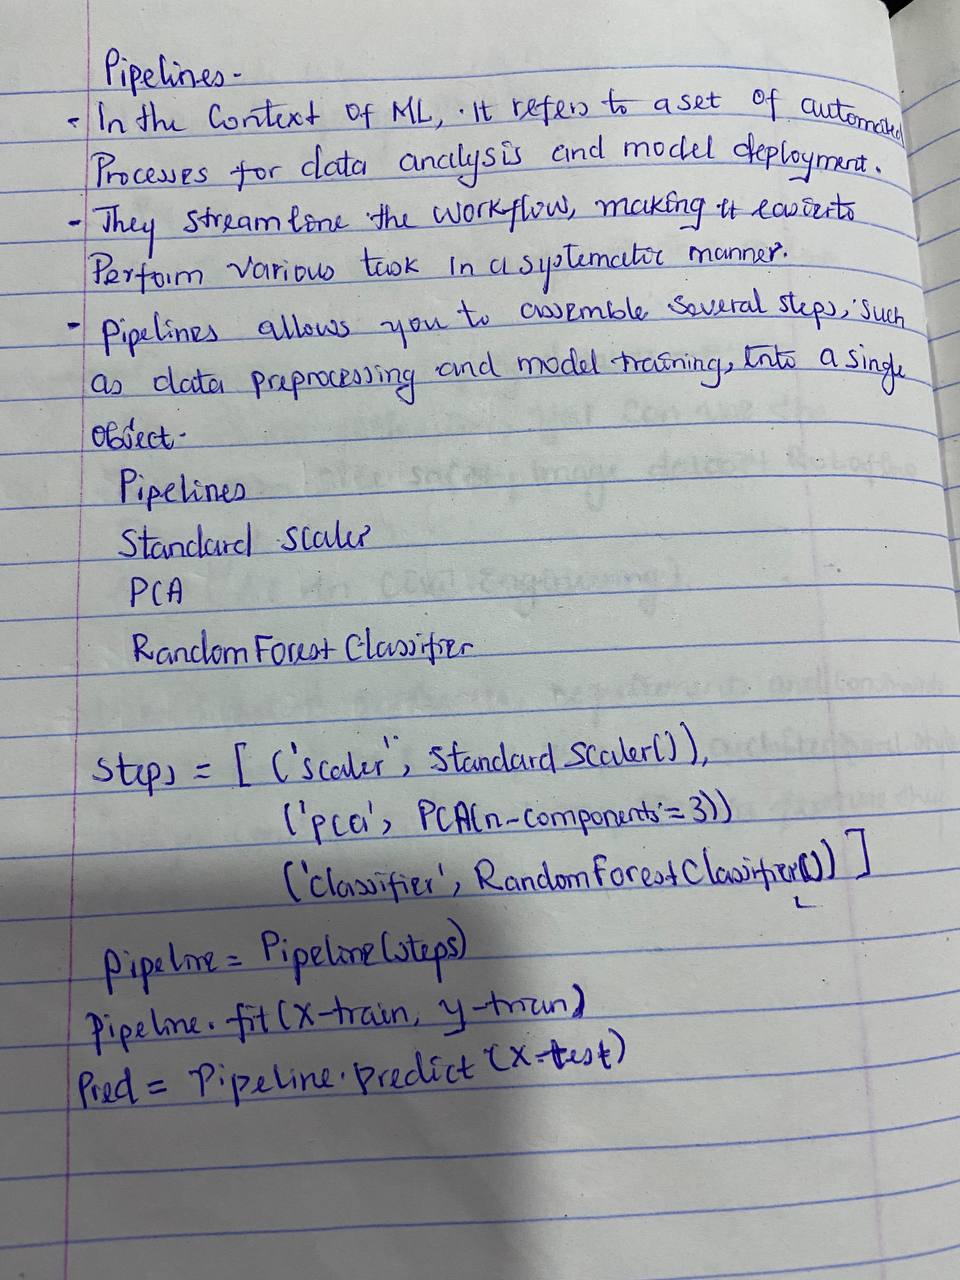 Pipelines -
- In the Context of ML, it refers to a set of automated
Processes for data analysis and model deployment.
- They streamline the workflow, making it easier to
Perform various task in a systematic manner.
- Pipelines allows you to assemble several steps, such
as data preprocessing and model training, into a single
object -
Pipelines
Standard scaler
PCA
RandomForest Classifier
Steps = [ ('scaler'', Standard Scaler()),
('pca', PCA(n-components = 3))
('classifier', RandomForestClassifier())]
pipeline = Pipeline(steps)
pipeline.fit(x-train, y-train)
Pred = Pipeline.predict(x-test)